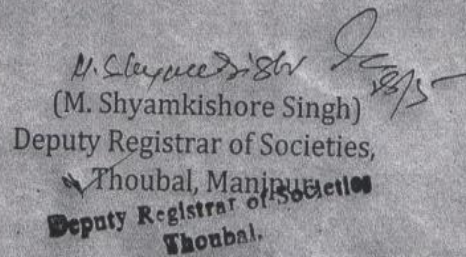 (M. Shyamkishore Singh)
Deputy Registrar of Societies,
Thoubal, Manipur.
Deputy Registrar of Societies
Thoubal.